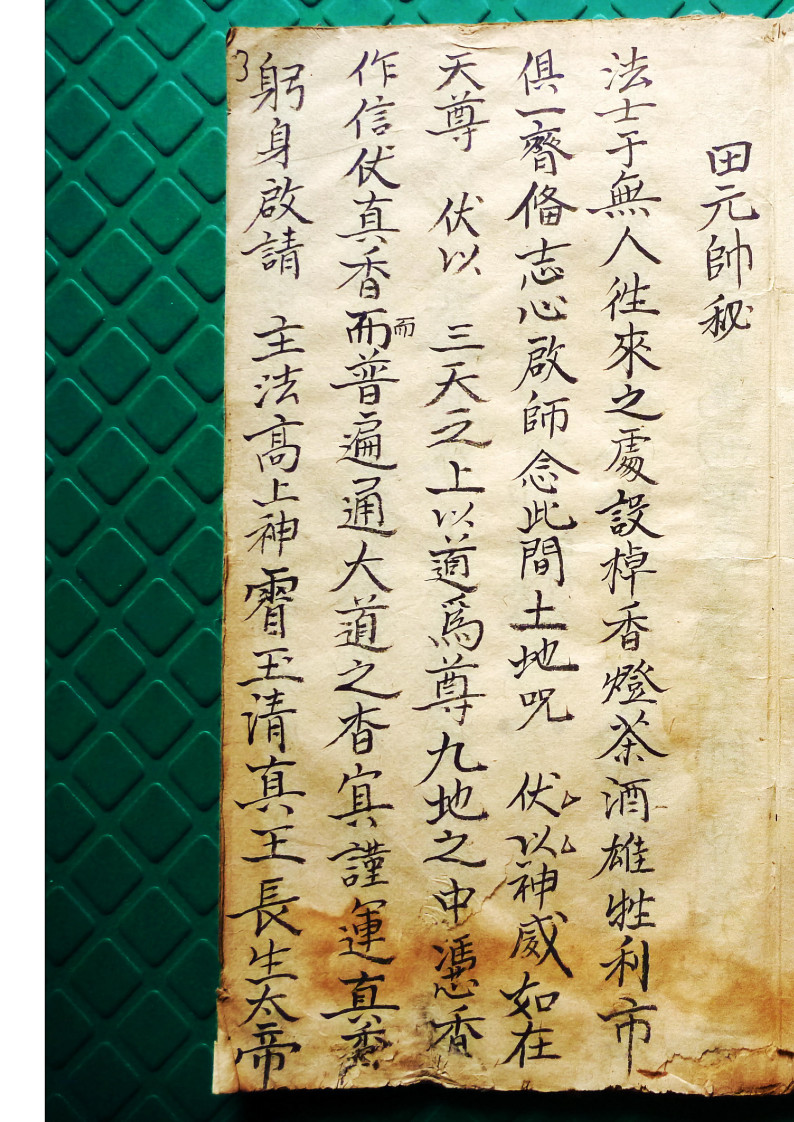 田元帥秘
法士于無人徃來之處設棹香燈茶酒雄牲利市
俱一齊俻志心啟師念此間土地呪 伏以神威如在
天尊 伏以 三天之上以道爲尊九地之中憑香
作信伏真香而而普遍通大道之杳㝠謹運真香
躬身啟請 主法高上神霄玉清真王長生太帝
3